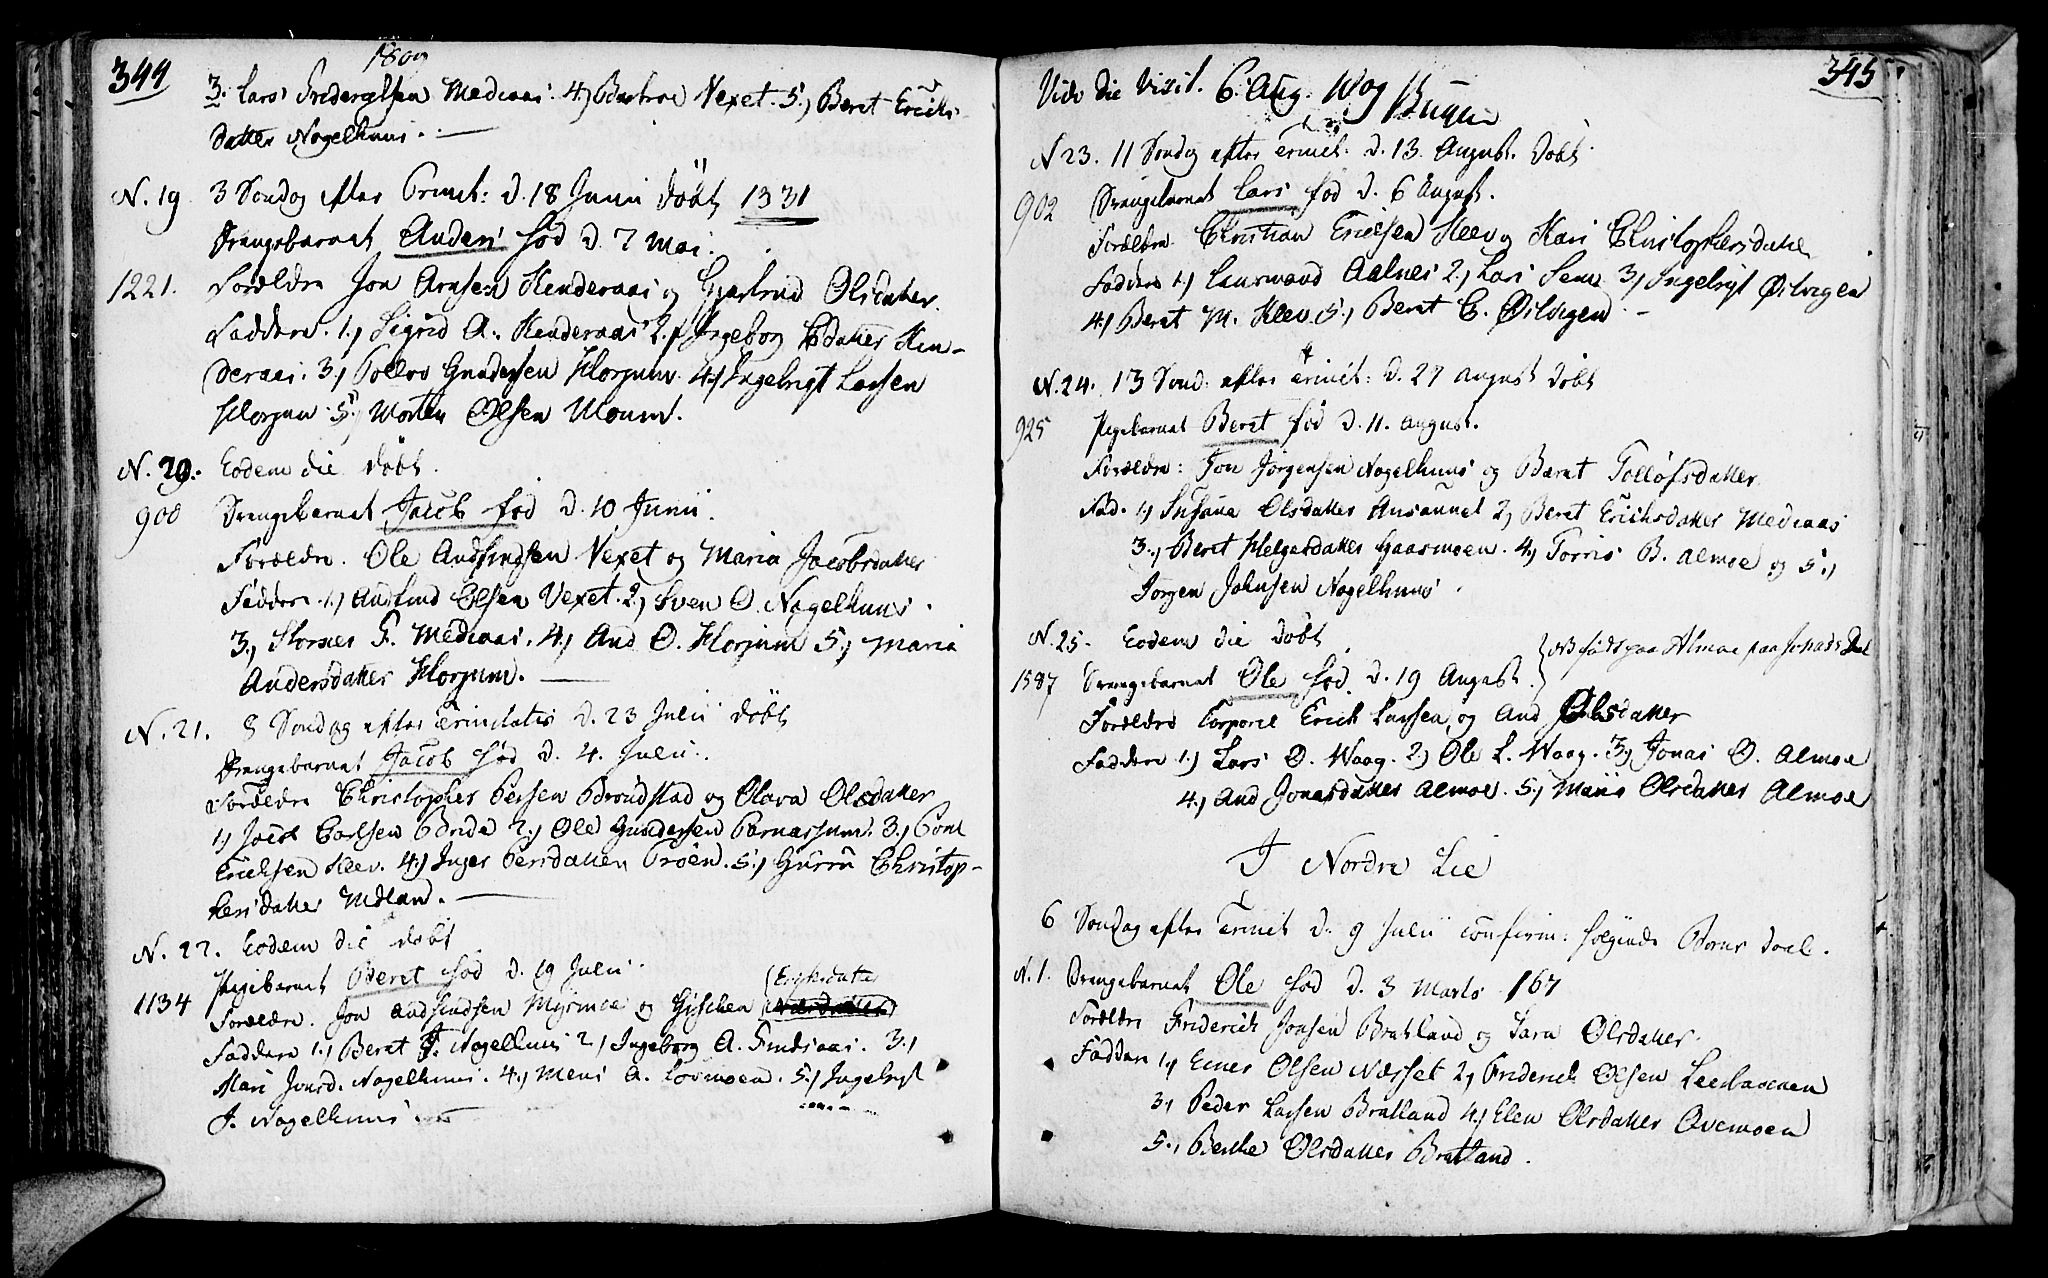 344
1809
3. Lars Friderichsen Mediaas 4.) Beret Vexet. 5.) Beret Erichs-
datter Nagelhuus.
N. 19 3 Søndag efter Trinit: d. 18 Junii døbt 1331
Drengebarnet Anders fød d. 7 Mai.
1221. Forældre Jon Arnsen Kenderaas og Gjertrud Olsdatter.
Faddere. 1.) Sigrid A. Kenderaas 2.) Ingeborg Esdatter Ken-
deraas. 3.) Tollev Gundersen Florjum 4.) Ingebrigt Larsen
Florjum 5.) Morten Olsen Moum.
N. 20. Eodem die døbt.
900 Drengebarnet Jacob fød d. 10 Junii.
Forældre. Ole Andfindsen Vexet og Maria Jacobsdatter
Faddere 1.) Andfind Olsen Vexet. 2.) Sven O. Nagelhuus.
3.) F. Mediaas. 4.) And O. Florjum 5.) Maria
Andersdatter Florjum.
N. 21. 8 Søndag efter Trinitatis d. 23 Julii døbt
Drengebarnet Jacob fød d. 4. Julii.
Forældre Christopher Persen Brøndstad og Olava Olsdatter
1.) Jacob Carlsen Bride 2.) Ole Gundersen Parnassum. 3.)
Erichsen Klev. 4.) Inger Persdatter Trøen. 5.) Gurru Christop-
hersdatter Midland.
N. 22. Eodem die døbt
Pigebarnet Beret fød d. 19 Julii.
1134 Forældre. Jon Andfindsen Myrmoe og Gischen (Eriksdatter
Faddere 1.) Beret J. Nagelhuus 2.) Ingeborg A. 3.)
Kari Jonsd. Nagelhuus. 4.) Mens A. Lovmoen. 5.) Ingebrigt
J. Nagelhuus
345
Vide die Visit. 6. Aug. 1809 Bugge
N 23. 11 Søndag efter Trinit: d. 13 August. døbt
902 Drengebarnet Lars fød d. 6 August.
Forældre Christian Erichsen Klev og Kari Christophersdatter
Faddere 1.) Aalnes 2.) Lars Sem 3.) Ingebrigt Øilvigen
4.) Beret M. Klev 5.) Beret C. Øilvigen.
N. 24. 13 Sønd: efter Trinit: d. 27 August døbt
925 Pigebarnet Beret fød d. 11. August.
Forældre: Jon Jørgensen Nagelhuus og Beret Tollofsdatter
Fad. 1.) Susana Olsdatter 2.) Beret Erichsdatter Mediaas
3.) Beret Helgesdatter Gaasmoen. 4.) Torris B. Almoe og 5.)
Jørgen Johnsen Nagelhuus.
N. 25. Eodem die døbt
1587 Drengebarnet Ole fød d. 19 August. NB født paa Almoe paa Jonas's Deel
Forældre Corporal Erich Larsen og And Olsdatter
Faddere 1.) Lars O. Waag. 2.) Ole L. Waag. 3.) Jonas O. Almoe
4.) And Jonasdatter Almoe. 5.) Olsdatter Almoe
I Nordre Lie
6 Søndag efter Trinit d. 9 Julii confirm: følgende Børns Daab.
N. 1. Drengebarnet Ole fød d. 3 Marts 167
Forældre Friderich Jonsen Bratland og Sara Olsdatter.
Faddere 1.) Einer Olsen Næsset 2.) Friderich Olsen
3.) Peder Larsen Bratland 4.) Elen Olsdatter Ovemoen
5.) Olsdatter Bratland.